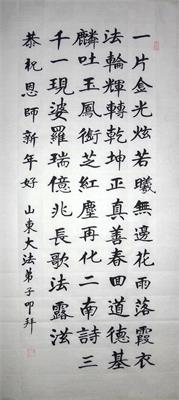 一片金光炫若曦無邊花雨落霞衣
法輪輝轉乾坤正真善春回道德基
麟吐玉鳳銜芝紅塵再化二南詩三
千一現婆羅瑞億兆長歌法露滋
恭祝恩師新年好
山東大法弟子叩拜